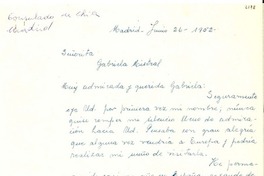 Consulado de Chile
Madrid
Madrid. Junio 26 - 1952.
Señorita
Gabriela Mistral
Muy admirada y querida Gabriela:
Seguramente
lea Ud. por primera vez mi nombre;
que romper mi silencio lleno de admira-
ción hacia Ud. Pensaba con gran alegría
que alguna vez vendría a Europa y podría
realizar mi sueño de visitarla.
He perma-